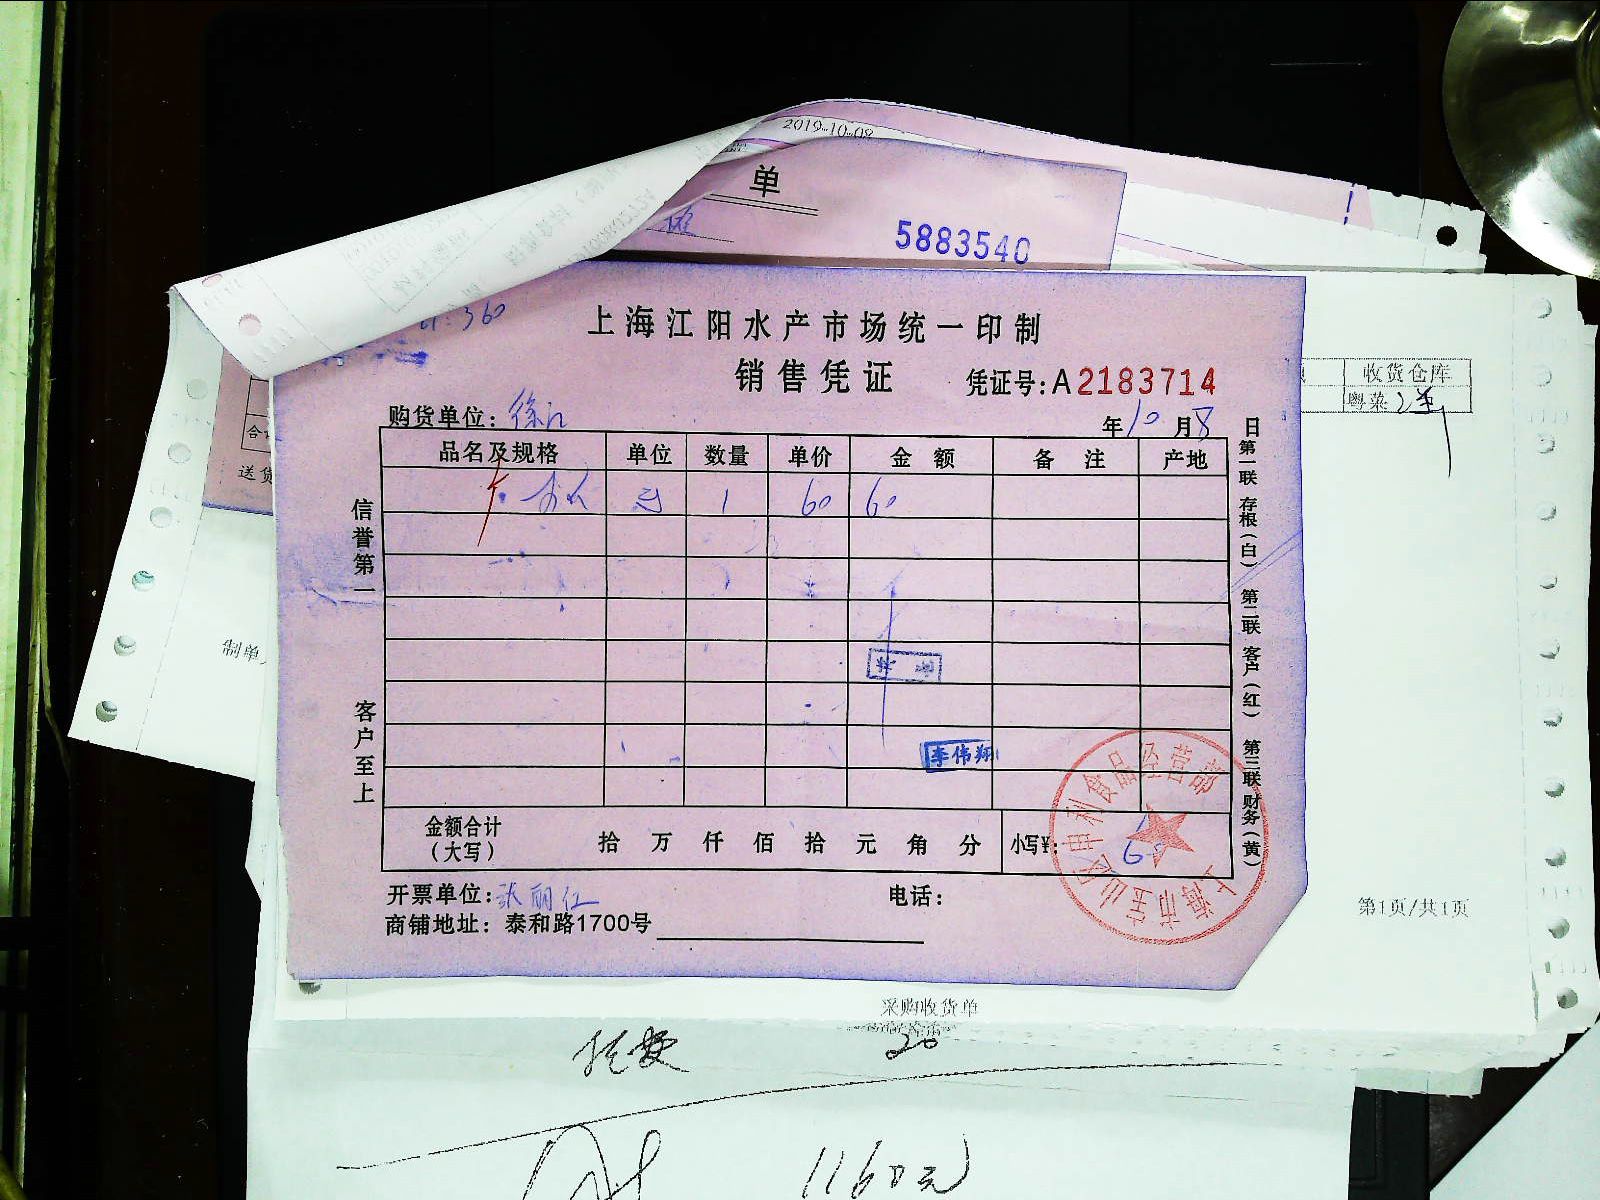 2019-10-08
单
5883540
360
上海江阳水产市场统一印制
销售凭证
凭证号:A2183714
购货单位:徐汇
年10月8日
品名及规格 单位 数量 单价 金额 备注 产地
1 60 60
信誉第一
客户至上
李伟翔
金额合计(大写) 拾 万 仟 佰 拾 元 角 分 小写¥:
开票单位:张丽红
电话:
商铺地址:泰和路1700号
第一联 存根(白) 第二联 客户(红) 第三联 财务(黄)
上海市宝山区申利食品经营部
收货仓库
粤菜
合
送货
制单人
第1页/共1页
采购收货单
20
1160元